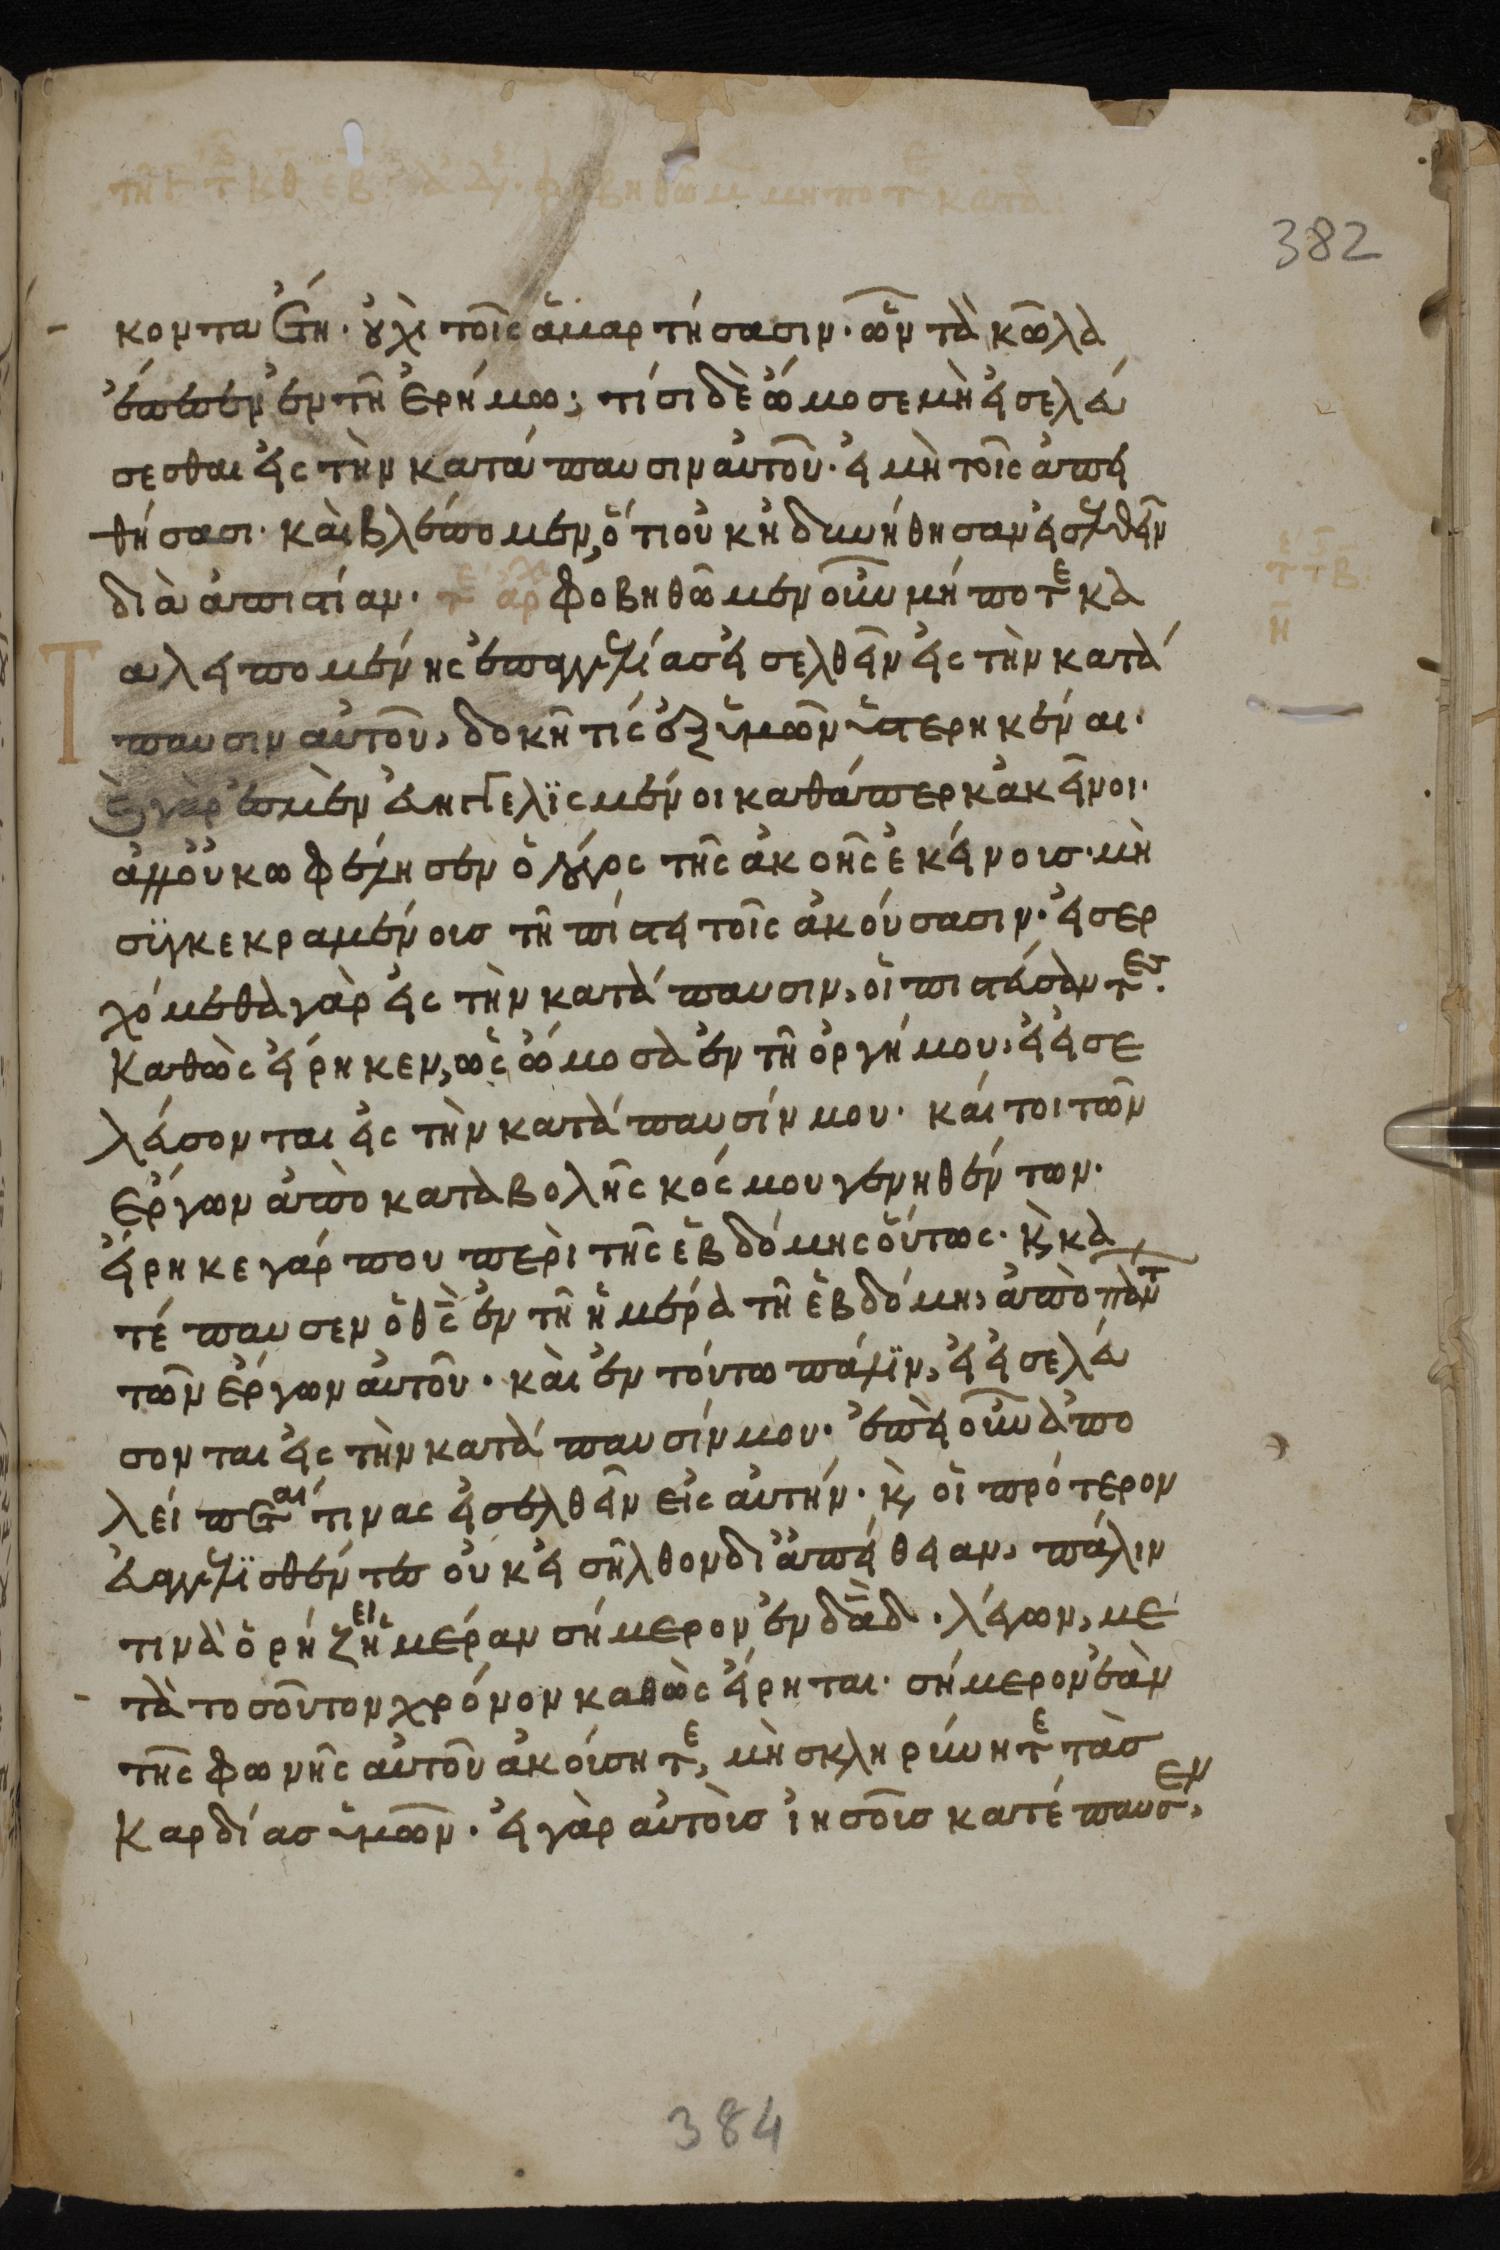 382
κοντα ἔτη· οὐχὶ τοῖς ἁμαρτήσασιν· ὧν τὰ κῶλα
ἔπεσεν ἐν τῇ ἐρήμω; τίσι δὲ ὤμοσε μὴ εἰσελεύ
σεσθαι εἰς τὴν κατάπαυσιν αὐτοῦ· εἰ μὴ τοῖς ἀπει
θήσασι· καὶ βλέπομεν, ὅτι οὐκ ἠδυνήθησαν εἰσελθεῖν
διὰ ἀπιστίαν· φοβηθῶμεν οὖν μήποτε κα
ταλειπομένης ἐπαγγελίας εἰσελθεῖν εἰς τὴν κατά
παυσιν αὐτοῦ, δοκῆ τίς ἐξ ὑμῶν ὑστερηκέναι·
καὶ γάρ ἐσμὲν εὐηγγελϊσμένοι καθάπερ κἀκεῖνοι·
ἀλλ' οὐκ ὠφέλησεν ὁ λόγος τῆς ἀκοῆς ἐκείνοις· μὴ
σϋγκεκραμένοις τῆ πίστει τοῖς ἀκούσασιν· εἰσερ
χόμεθα γὰρ εἰς τὴν κατάπαυσιν, οἱ πιστεύσαντες·
Καθὼς εἴρηκεν, ὡς ὤμοσα ἐν τῆ ὀργή μου, εἰ εἰσε
λεύσονται εἰς τὴν κατάπαυσίν μου· καίτοι τῶν
ἔργων ἀπὸ καταβολῆς κόσμου γενηθέντων·
εἴρηκε γάρ που περὶ τῆς ἑβδόμης οὕτως· κ̀ κα
τέπαυσεν ὁ θς ἐν τῆ ἡμέρα τῆ ἑβδόμη, ἀπὸ πάντ
τῶν ἔργων αὐτοῦ· καὶ ἐν τούτω πάλϊν, εἰ εἰσελεύ
σονται εἰς τὴν κατάπαυσίν μου· ἐπεὶ οὖν ἀπο
λείπεται τινας εἰσελθεῖν εἰς αὐτήν· κ̀ οἱ πρότερον
εὐαγγελϊσθέντες οὐκ εἰσῆλθον δι ἀπείθειαν, πάλιν
τινὰ ὁρίζει ἡμέραν σήμερον ἐν δαδ· λέγων, με
τὰ τοσοῦτον χρόνον καθὼς εἴρηται· σήμερον ἐὰν
τῆς φωνῆς αὐτοῦ ἀκούσητε, μὴ σκληρύνητε τὰς
Καρδίας ὑμῶν· εἰ γὰρ αὐτοὺς ἰησοῦς κατέπαυσεν,
384